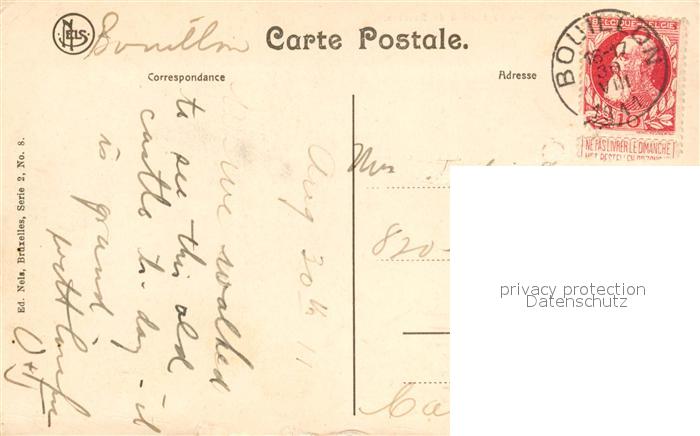 NELS
Bouillon
Carte Postale.
Correspondance
Adresse
Ed. Nels, Bruxelles, Serie 2, No. 8.
Aug 30th 11
we walked
to see this old
castle to-day - it
is grand
with love
BOUILLON
16-17
30
VIII
1911
BELGIQUE-BELGIË
10
NE PAS LIVRER LE DIMANCHE
Mrs
820
Ca
privacy protection
Datenschutz